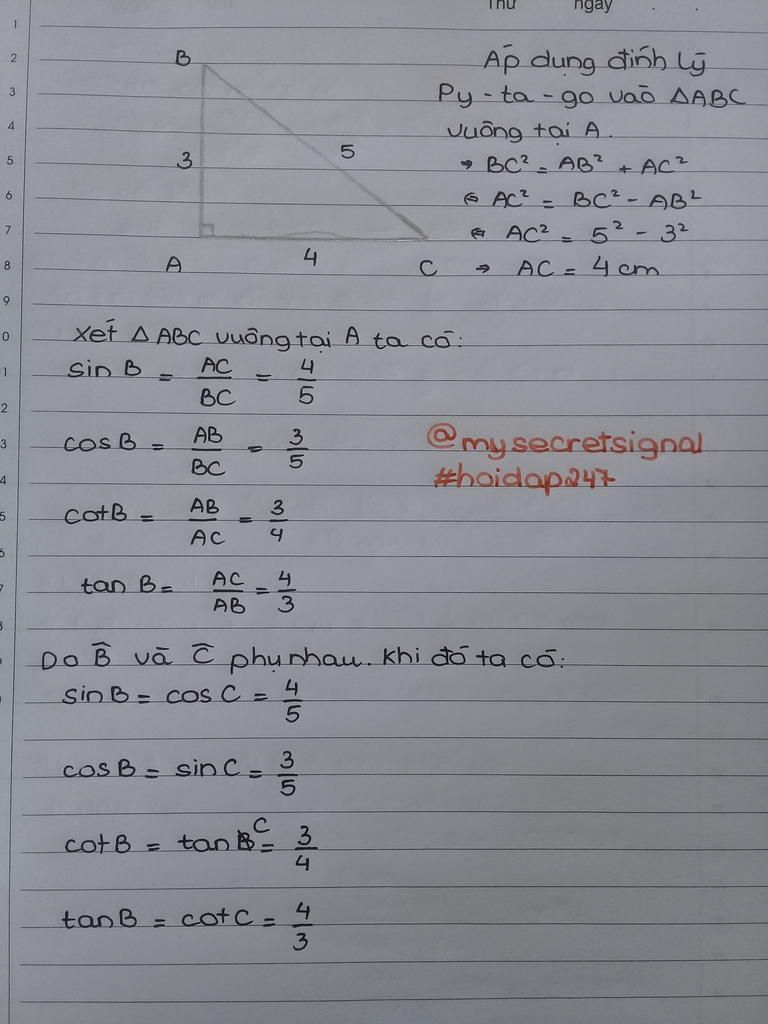 Thứ ngày . .
1
2
3
4
5
6
7
8
9
0
1
2
3
4
5
6
7
8
B
3
5
A
4
C
Áp dụng định lý
Py - ta - go vào △ABC
vuông tại A.
→ BC² = AB² + AC²
⇔ AC² = BC² - AB²
⇔ AC² = 5² - 3²
→ AC = 4 cm
Xét △ABC vuông tại A ta có:
sin B = AC/BC = 4/5
cosB = AB/BC = 3/5
@mysecretsignal
#hoidap247
cotB = AB/AC = 3/4
tan B = AC/AB = 4/3
Do B̂ và Ĉ phụ nhau. Khi đó ta có:
sinB = cosC = 4/5
cosB = sinC = 3/5
cotB = tanC = 3/4
tanB = cotC = 4/3